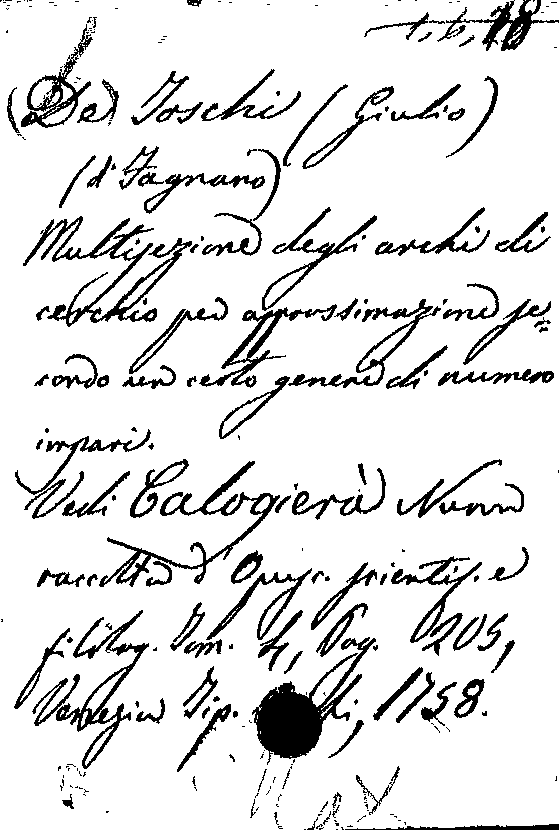 1, 6, 18
(De) Toschi (Giulio)
(di Fagnano)
Multisezione degli archi di
cerchio per approssimazione se=
condo un certo genere di numero
impari.
Vedi Calogierà Nuova
raccolta d'Opusc. scientif. e
filolog. Tom. 4, Pag. 205,
Venezia Tip. 1758.